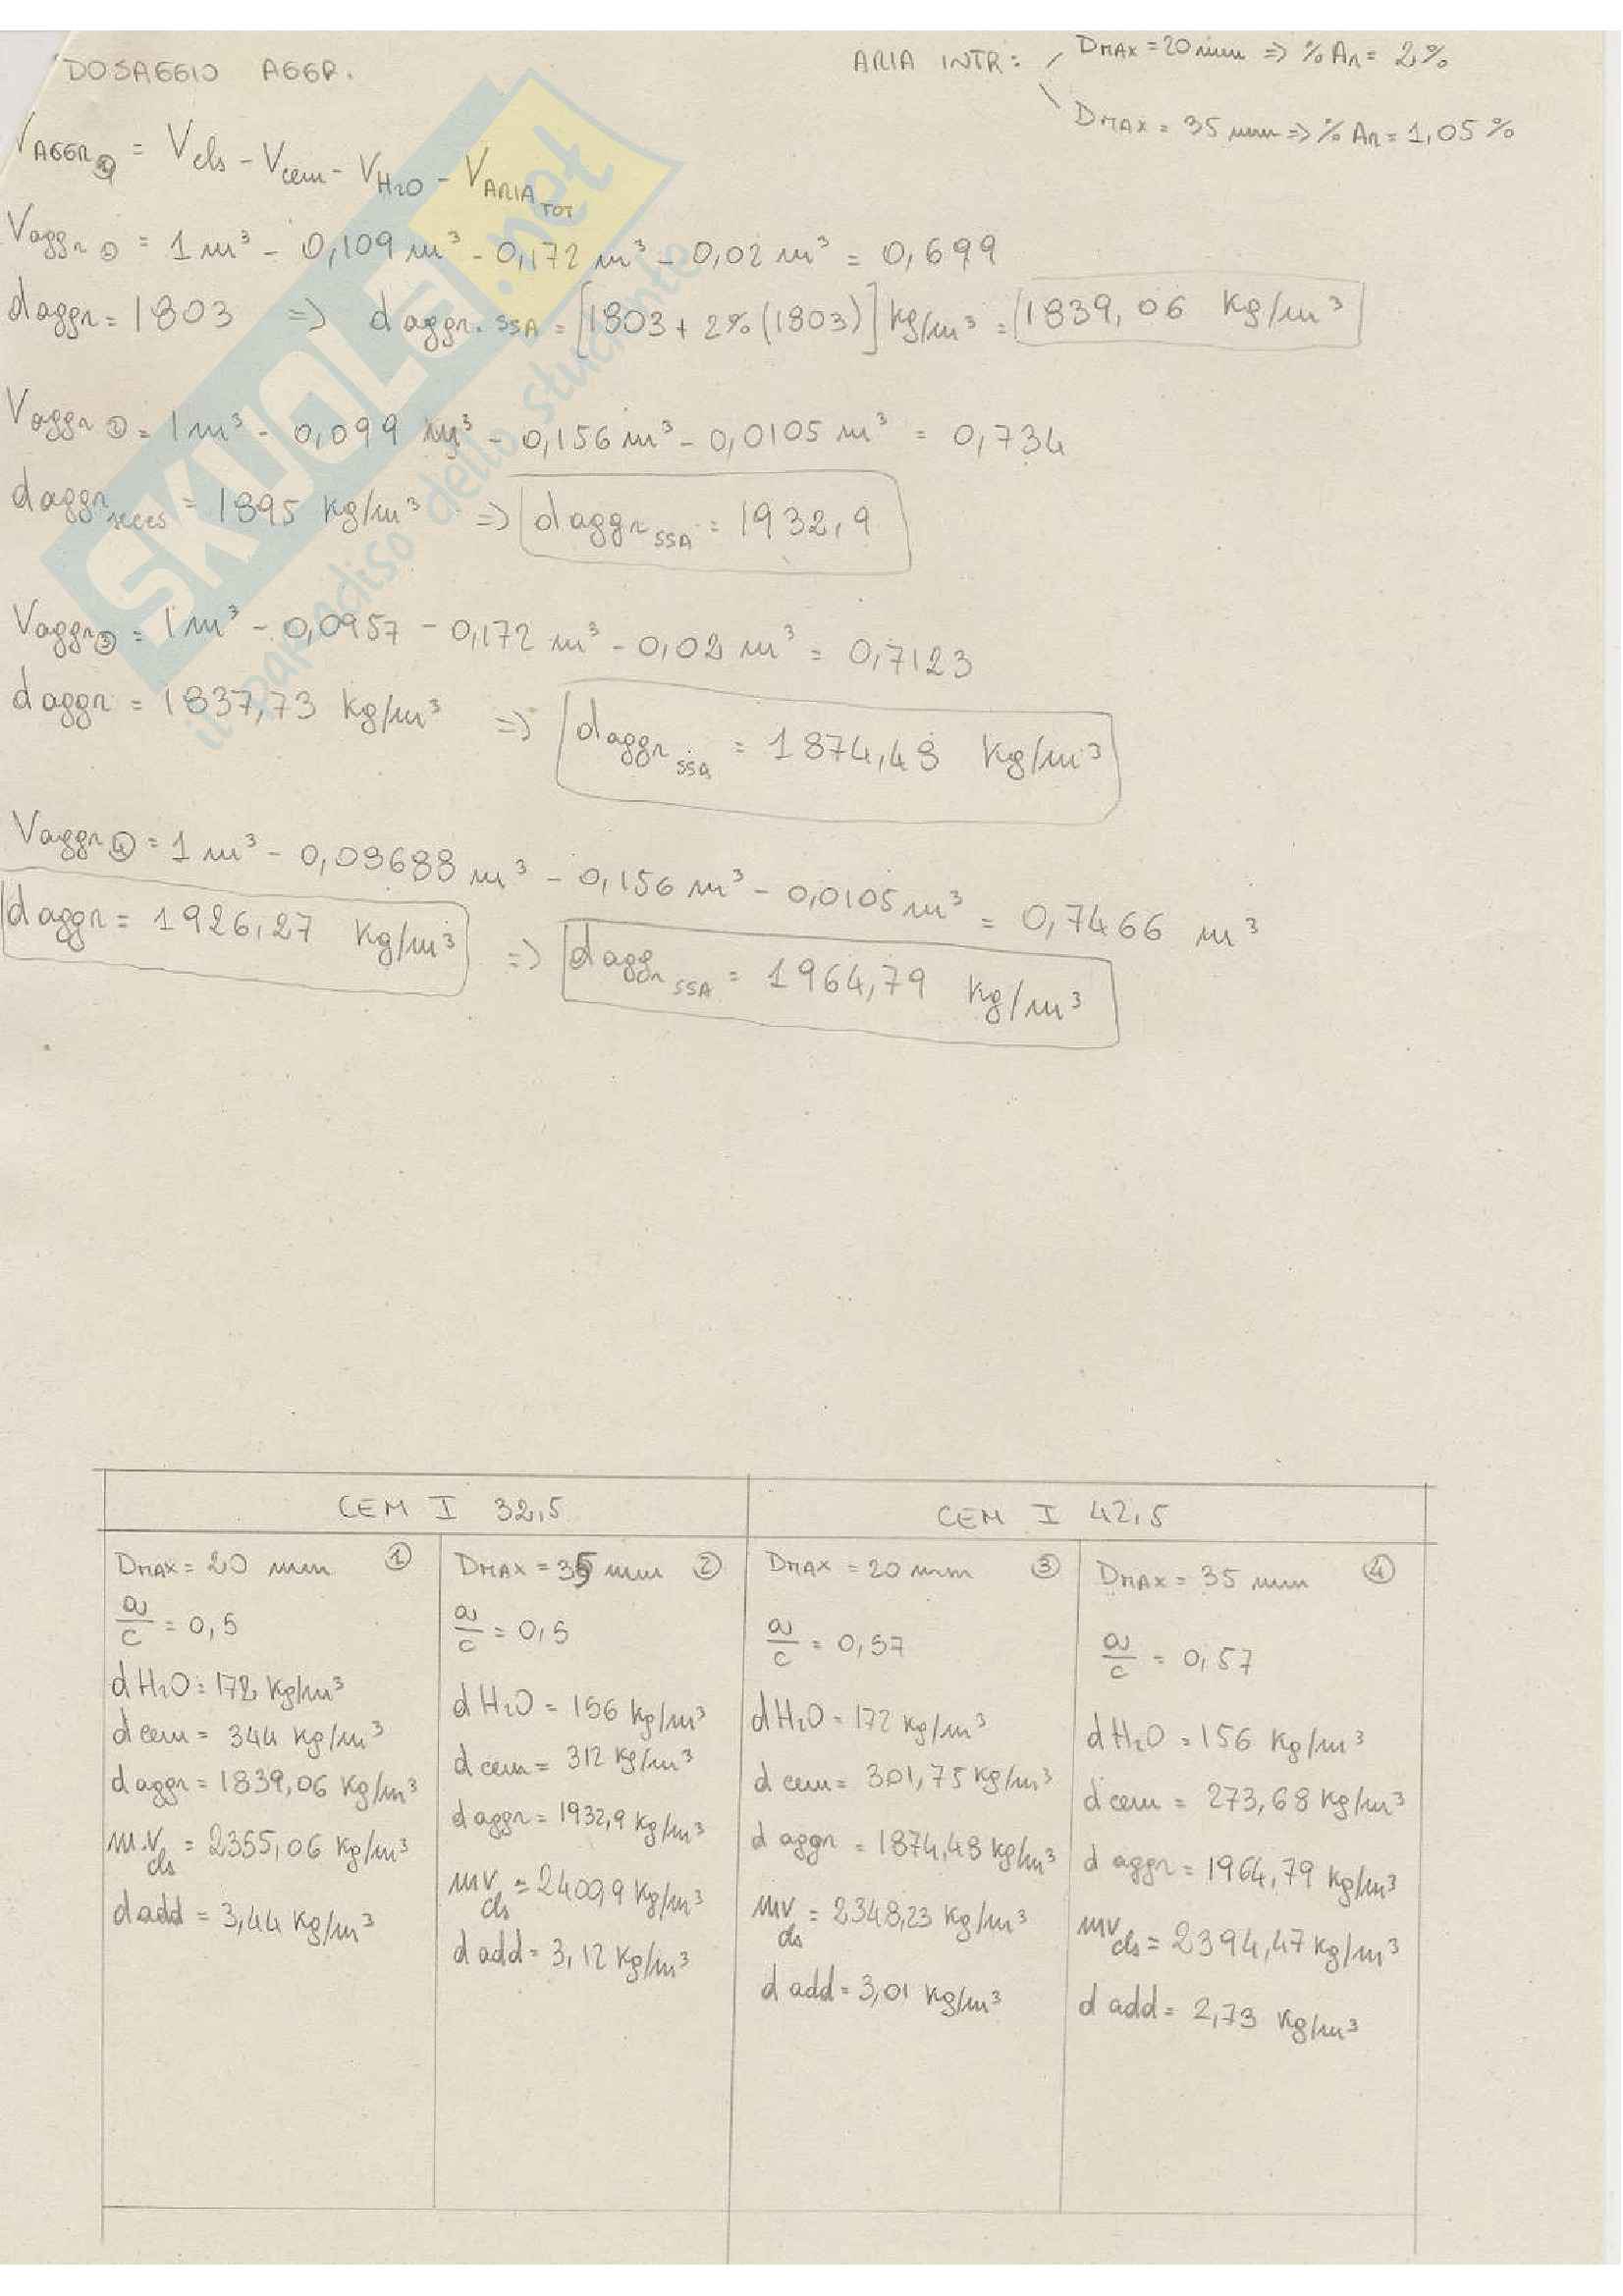 DOSAGGIO AGGR.
ARIA INTR: DMAX = 20 mm => % Ar = 2%
DMAX = 35 mm => % Ar = 1,05%
VAGGR = Vcls - Vcem - VH2O - VARIA TOT
Vaggr① = 1 m³ - 0,109 m³ - 0,172 m³ - 0,02 m³ = 0,699
daggr = 1803 => daggr. SSA = [1803 + 2% (1803)] kg/m³ = 1839,06 kg/m³
Vaggr② = 1 m³ - 0,099 m³ - 0,156 m³ - 0,0105 m³ = 0,734
daggr secco = 1895 kg/m³ => daggr SSA = 1932,9
Vaggr③ = 1 m³ - 0,0957 - 0,172 m³ - 0,02 m³ = 0,7123
daggr = 1837,73 kg/m³ => daggr SSA = 1874,48 kg/m³
Vaggr④ = 1 m³ - 0,08688 m³ - 0,156 m³ - 0,0105 m³ = 0,7466 m³
daggr = 1926,27 kg/m³ => daggr SSA = 1964,79 kg/m³
SKUOLA.net
il paradiso dello studente
CEM I 32,5
CEM I 42,5
DMAX = 20 mm ①
a/c = 0,5
dH2O = 172 kg/m³
dcem = 344 kg/m³
daggr = 1839,06 kg/m³
m.v cls = 2355,06 kg/m³
dadd = 3,44 kg/m³
DMAX = 35 mm ②
a/c = 0,5
dH2O = 156 kg/m³
dcem = 312 kg/m³
daggr = 1932,9 kg/m³
mv cls = 2400,9 kg/m³
dadd = 3,12 kg/m³
DMAX = 20 mm ③
a/c = 0,57
dH2O = 172 kg/m³
dcem = 301,75 kg/m³
daggr = 1874,48 kg/m³
mv cls = 2348,23 kg/m³
dadd = 3,01 kg/m³
DMAX = 35 mm ④
a/c = 0,57
dH2O = 156 kg/m³
dcem = 273,68 kg/m³
daggr = 1964,79 kg/m³
mv cls = 2394,47 kg/m³
dadd = 2,73 kg/m³